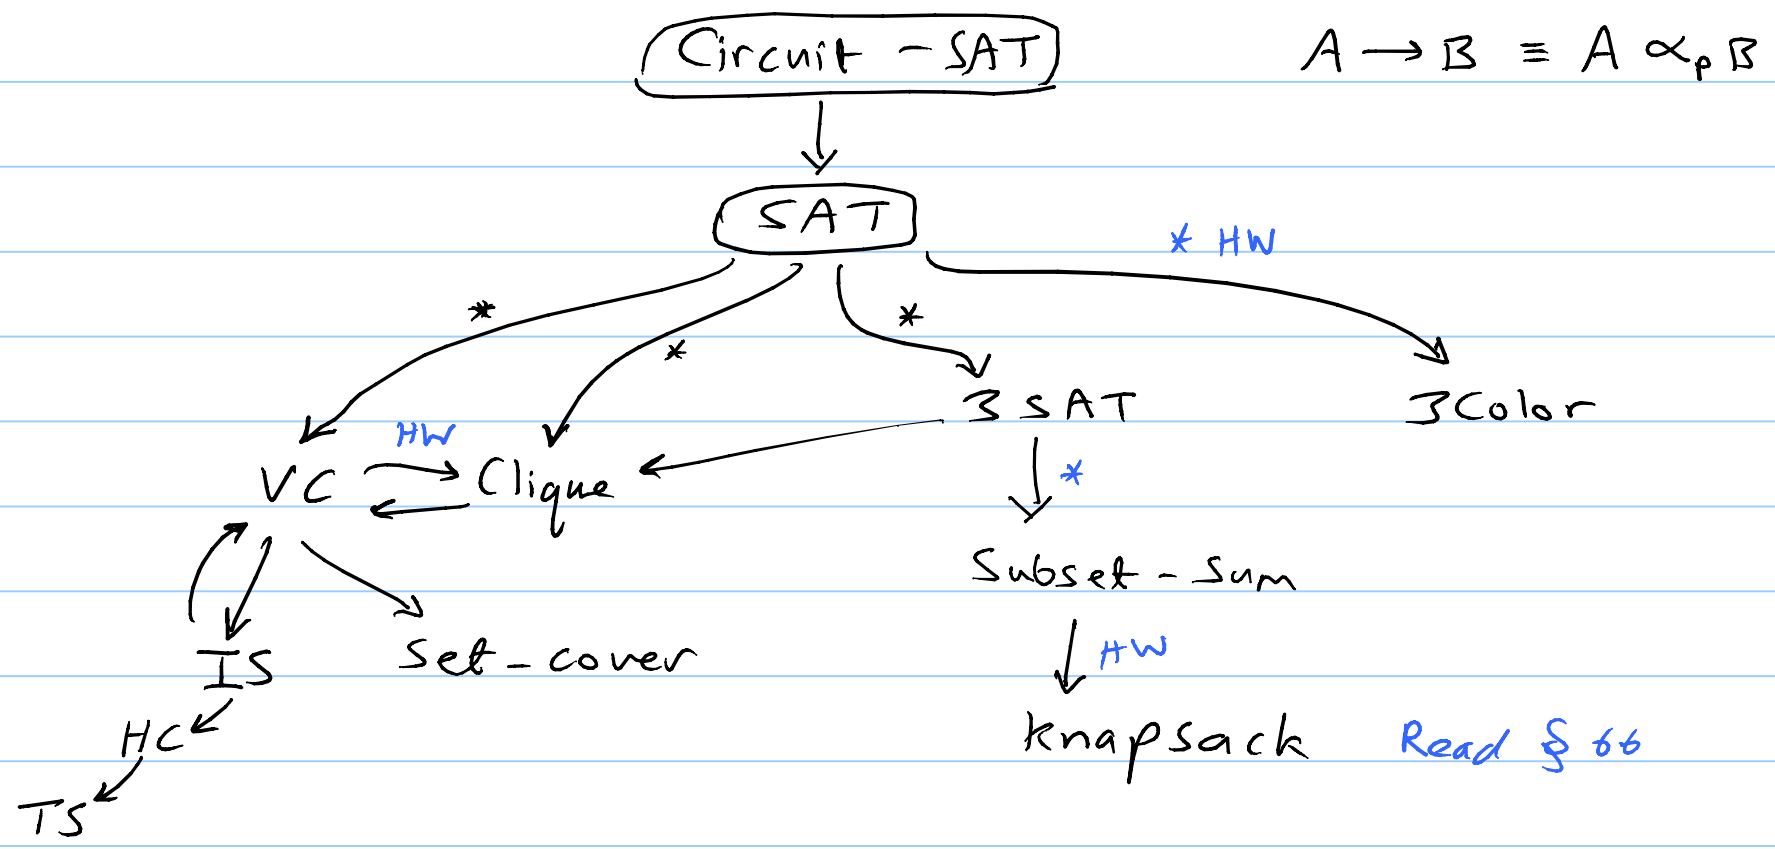 Circuit - SAT
A → B ≡ A ∝p B
SAT
* HW
*
*
*
3SAT
3Color
HW
VC
Clique
*
Subset - Sum
IS
Set - cover
HW
HC
Knapsack
Read § 66
TS